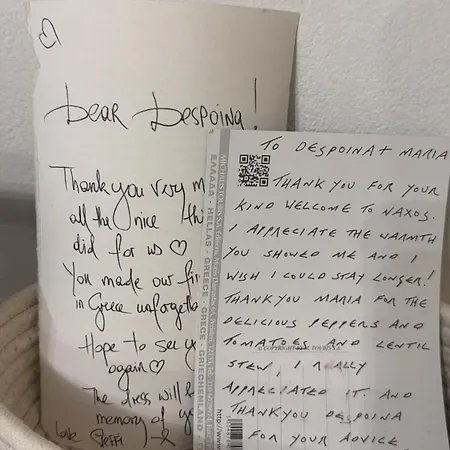 Dear Despoina!
Thank you very m
all the nice thi
did for us ♡
You made our fir
in Grece unforgetta
Hope to see y
again ♡
The dress will b
memory of y
Love Steffi
TO DESPOINA + MARIA
THANK YOU FOR YOUR
KIND WELCOME TO NAXOS.
I APPRECIATE THE WARMTH
YOU SHOWED ME AND I
WISH I COULD STAY LONGER!
THANK YOU MARIA FOR THE
DELICIOUS PEPPERS AND
TOMATOES AND LENTIL
© COPYRIGHT TOURIS S.A.
STEW, I REALLY
APPRECIATED IT. AND
THANKYOU DESPOINA
FOR YOUR ADVICE
ΕΛΛΑΔΑ - HELLAS - GREECE - GRECE - GRIECHENLAND
http://www